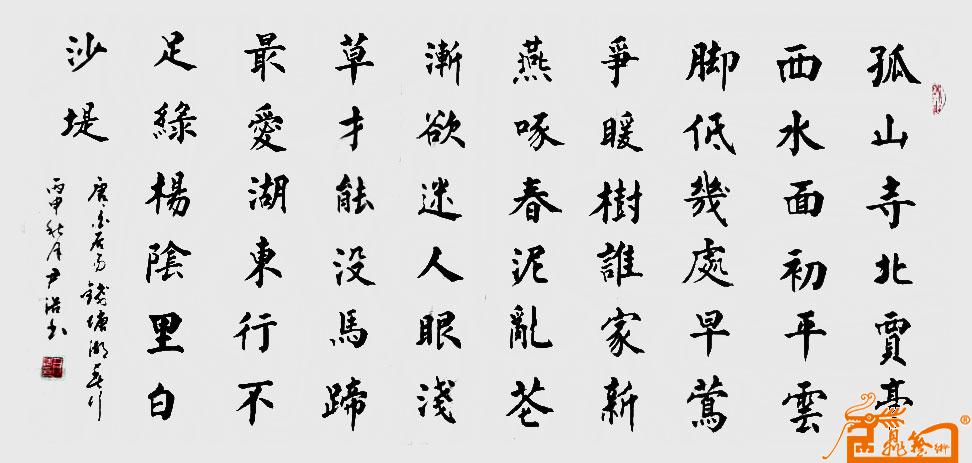 孤山寺北賈亭
西水面初平雲
脚低幾處早鶯
爭暖樹誰家新
燕啄春泥亂花
漸欲迷人眼淺
草才能没馬蹄
最愛湖東行不
足綠楊陰里白
沙堤
唐白居易錢塘湖春行
丙申秋月尹浩書